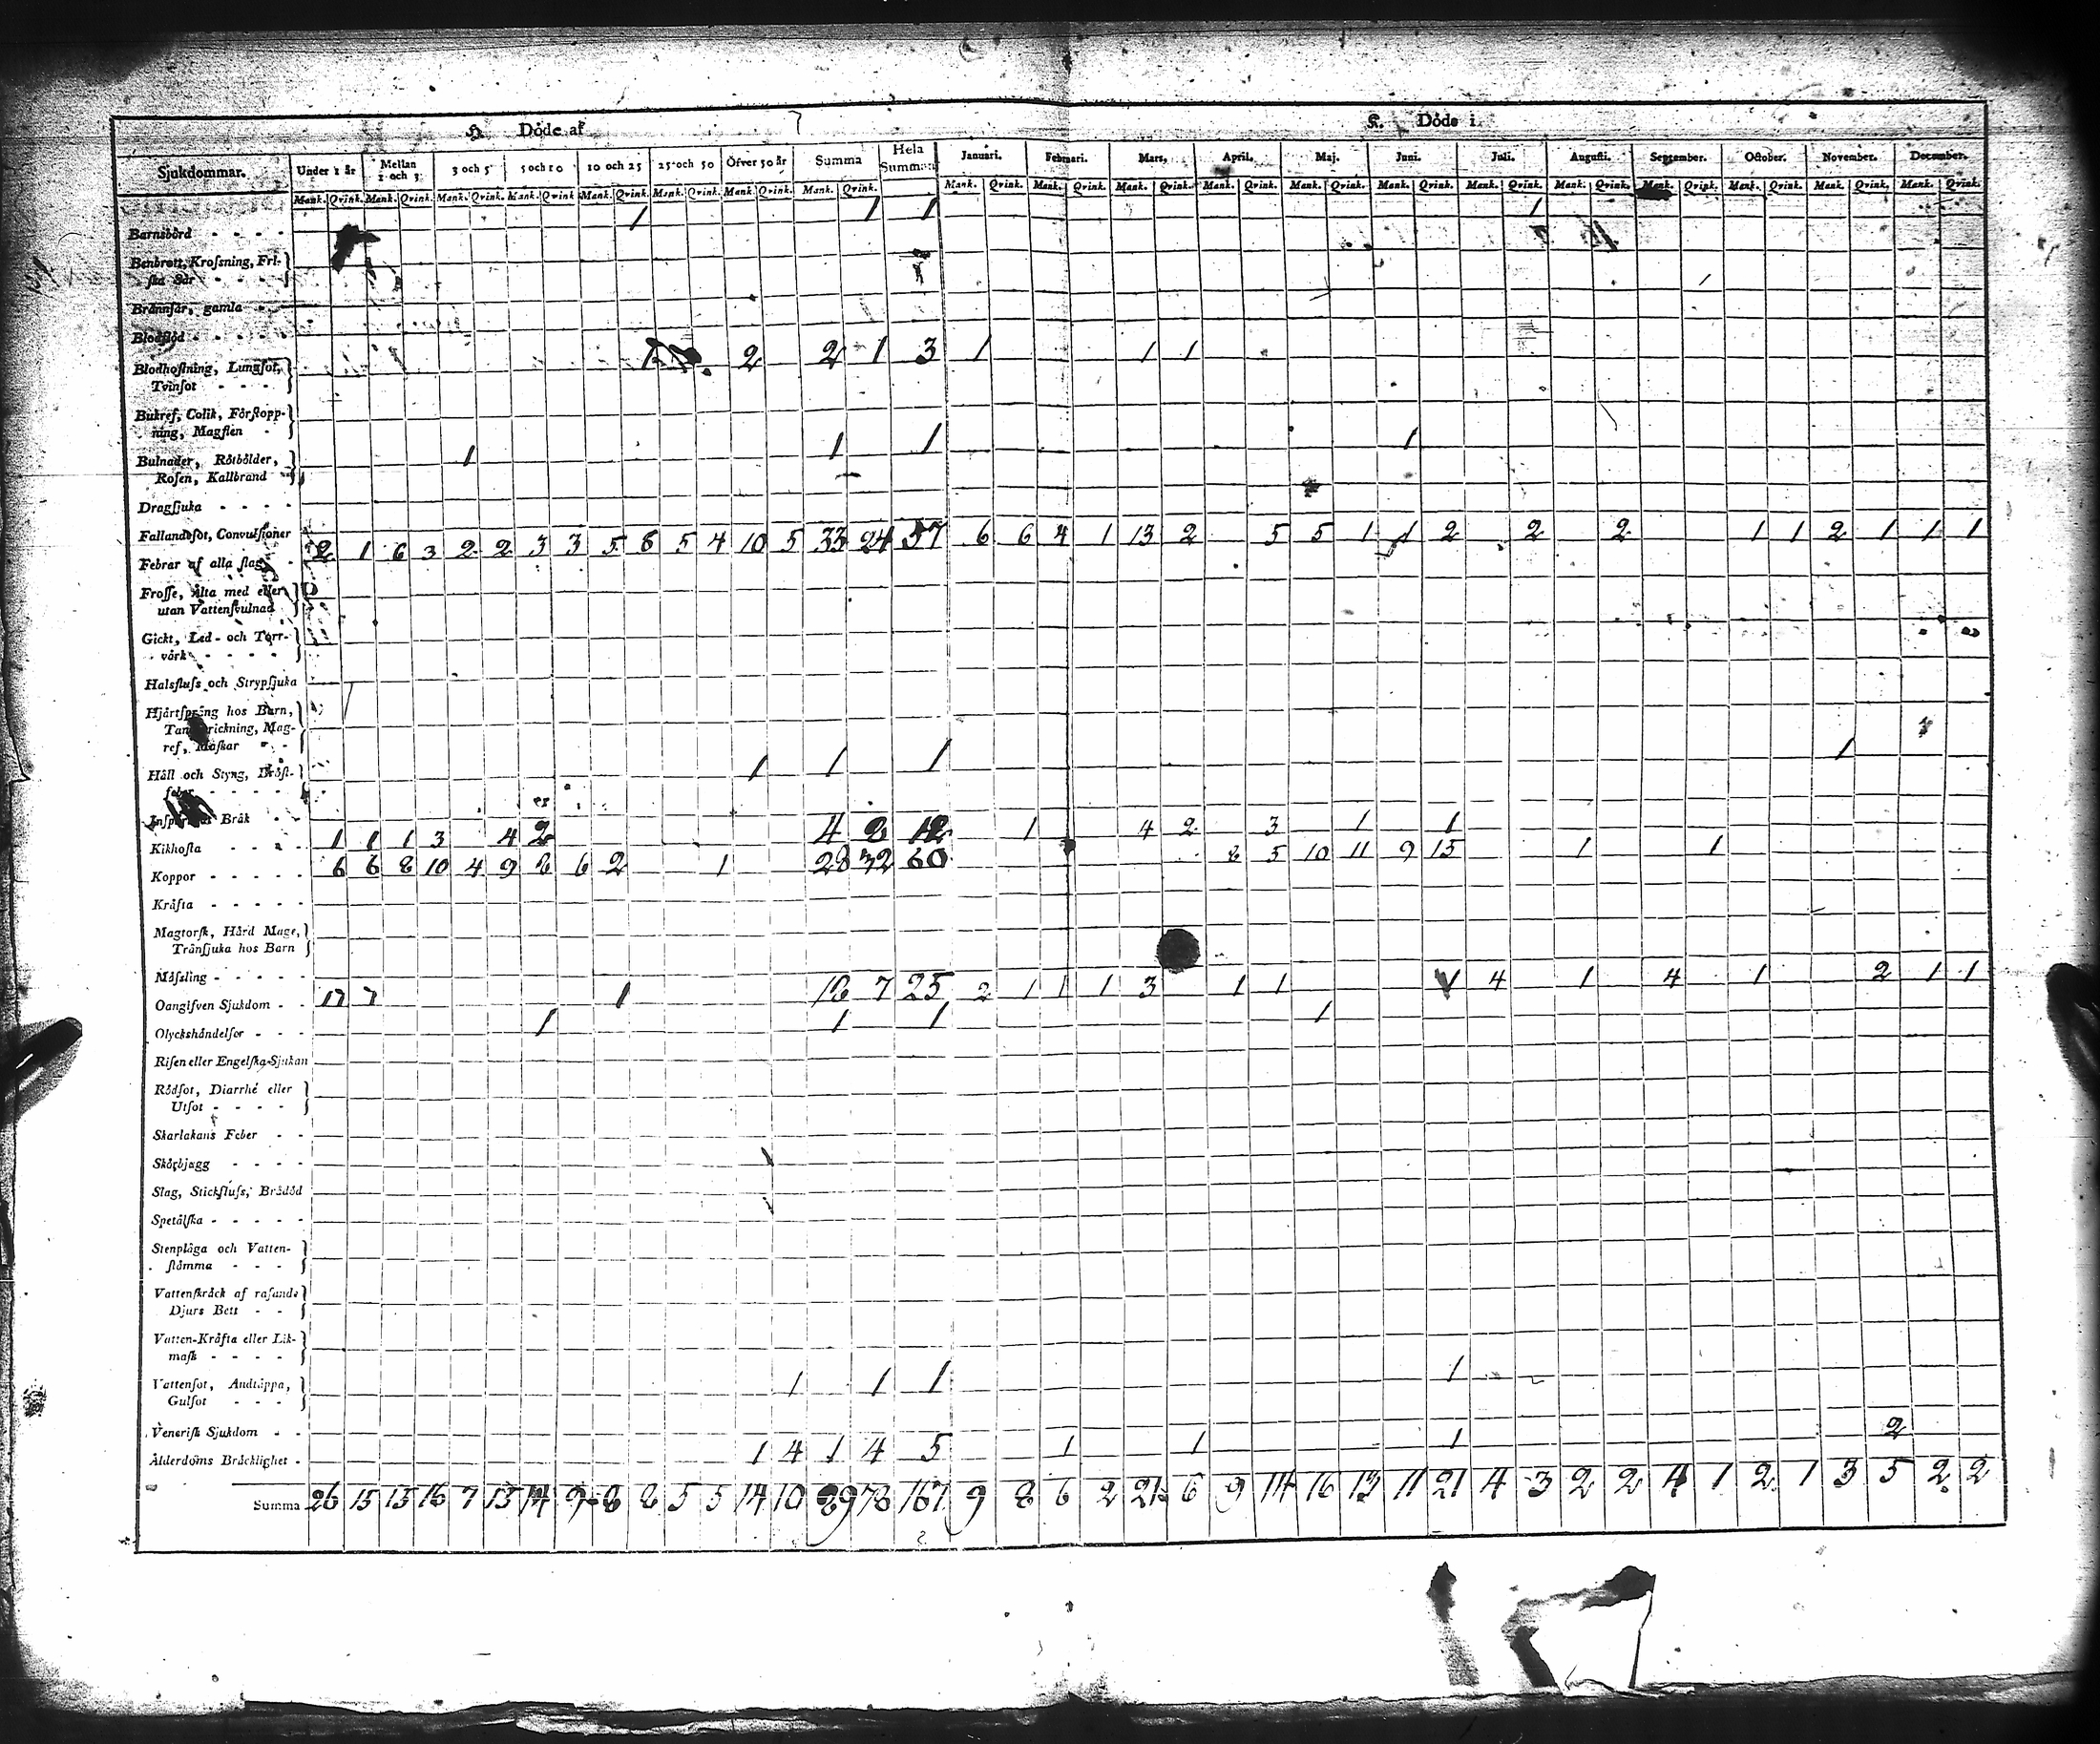 H. Döde af
K. Döde i
Sjukdommar. Under 1 år Mellan 1 och 3 3 och 5 5 och 10 10 och 25 25 och 50 Öfver 50 år Summa Hela Summan Januari. Februari. Mars. April. Maj. Juni. Juli. Augusti. September. October. November. December.
Mank. Qvink. Mank. Qvink. Mank. Qvink. Mank. Qvink. Mank. Qvink. Mank. Qvink. Mank. Qvink. Mank. Qvink. Mank. Qvink. Mank. Qvink. Mank. Qvink. Mank. Qvink. Mank. Qvink. Mank. Qvink. Mank. Qvink. Mank. Qvink. Mank. Qvink. Mank. Qvink. Mank. Qvink. Mank. Qvink.
Barnsbörd - - - - 1 1 1 1
Benbrott, Krofsning, Fri-
ska Sår - - - -
Brännsår, gamla - -
Blodflöd - - - - -
Blodhostning, Lungsot, 1 2 2 1 3 1 1 1
Tvinsot - - - -
Bukref, Colik, Förstopp-
ning, Magsien -
Bulnader, Rötbölder, 1 1 1 1
Rosen, Kallbrand - -
Dragsjuka - - - -
Fallandesot, Convulsioner
Febrar af alla slag - 2 1 6 3 2 2 3 3 5 6 5 4 10 5 33 24 57 6 6 4 1 13 2 5 5 1 1 2 2 2 1 1 2 1 1 1
Frosse, Älta med eller
utan Vattensvulnad
Gickt, Led- och Torr-
värk - - - - -
Halsflufs och Strypsjuka
Hjärtspång hos Barn,
ref, Maskar - -
Håll och Styng, Bröst- 1 1 1 1
feber - - - - -
Bråk - -
Kikhosta - - - - 1 1 1 3 4 2 4 8 12 1 4 2 3 1 1
Koppor - - - - - 6 6 8 10 4 9 8 6 2 1 28 32 60 8 5 10 11 9 15 1 1
Kräfta - - - - -
Magtorsk, Hård Mage,
Tränsjuka hos Barn
Mäfsling - - - - -
Oangifven Sjukdom - - 17 7 1 18 7 25 2 1 1 1 3 1 1 1 4 1 4 1 2 1 1
Olyckshändelser - - - 1 1 1 1
Risen eller Engelska Sjukan
Rödsot, Diarrhé eller
Utsot - - - -
Skarlakans Feber - -
Skörbjugg - - - -
Slag, Stickflufs, Brådöd
Spetälska - - - - -
Stenplåga och Vatten-
stämma - - - -
Vattenskräck af rasande
Djurs Bett - -
Vatten-Kräfta eller Lik-
mask - - - -
Vattensot, Andtäppa, 1 1 1 1
Gulsot - - -
Venerisk Sjukdom - -
Ålderdoms Bräcklighet - 1 4 1 4 5 1 1 1 2
Summa 26 15 15 16 7 13 14 9 8 8 5 5 14 10 89 78 167 9 8 6 2 21 6 9 14 16 13 11 21 4 3 2 2 4 1 2 1 3 5 2 2